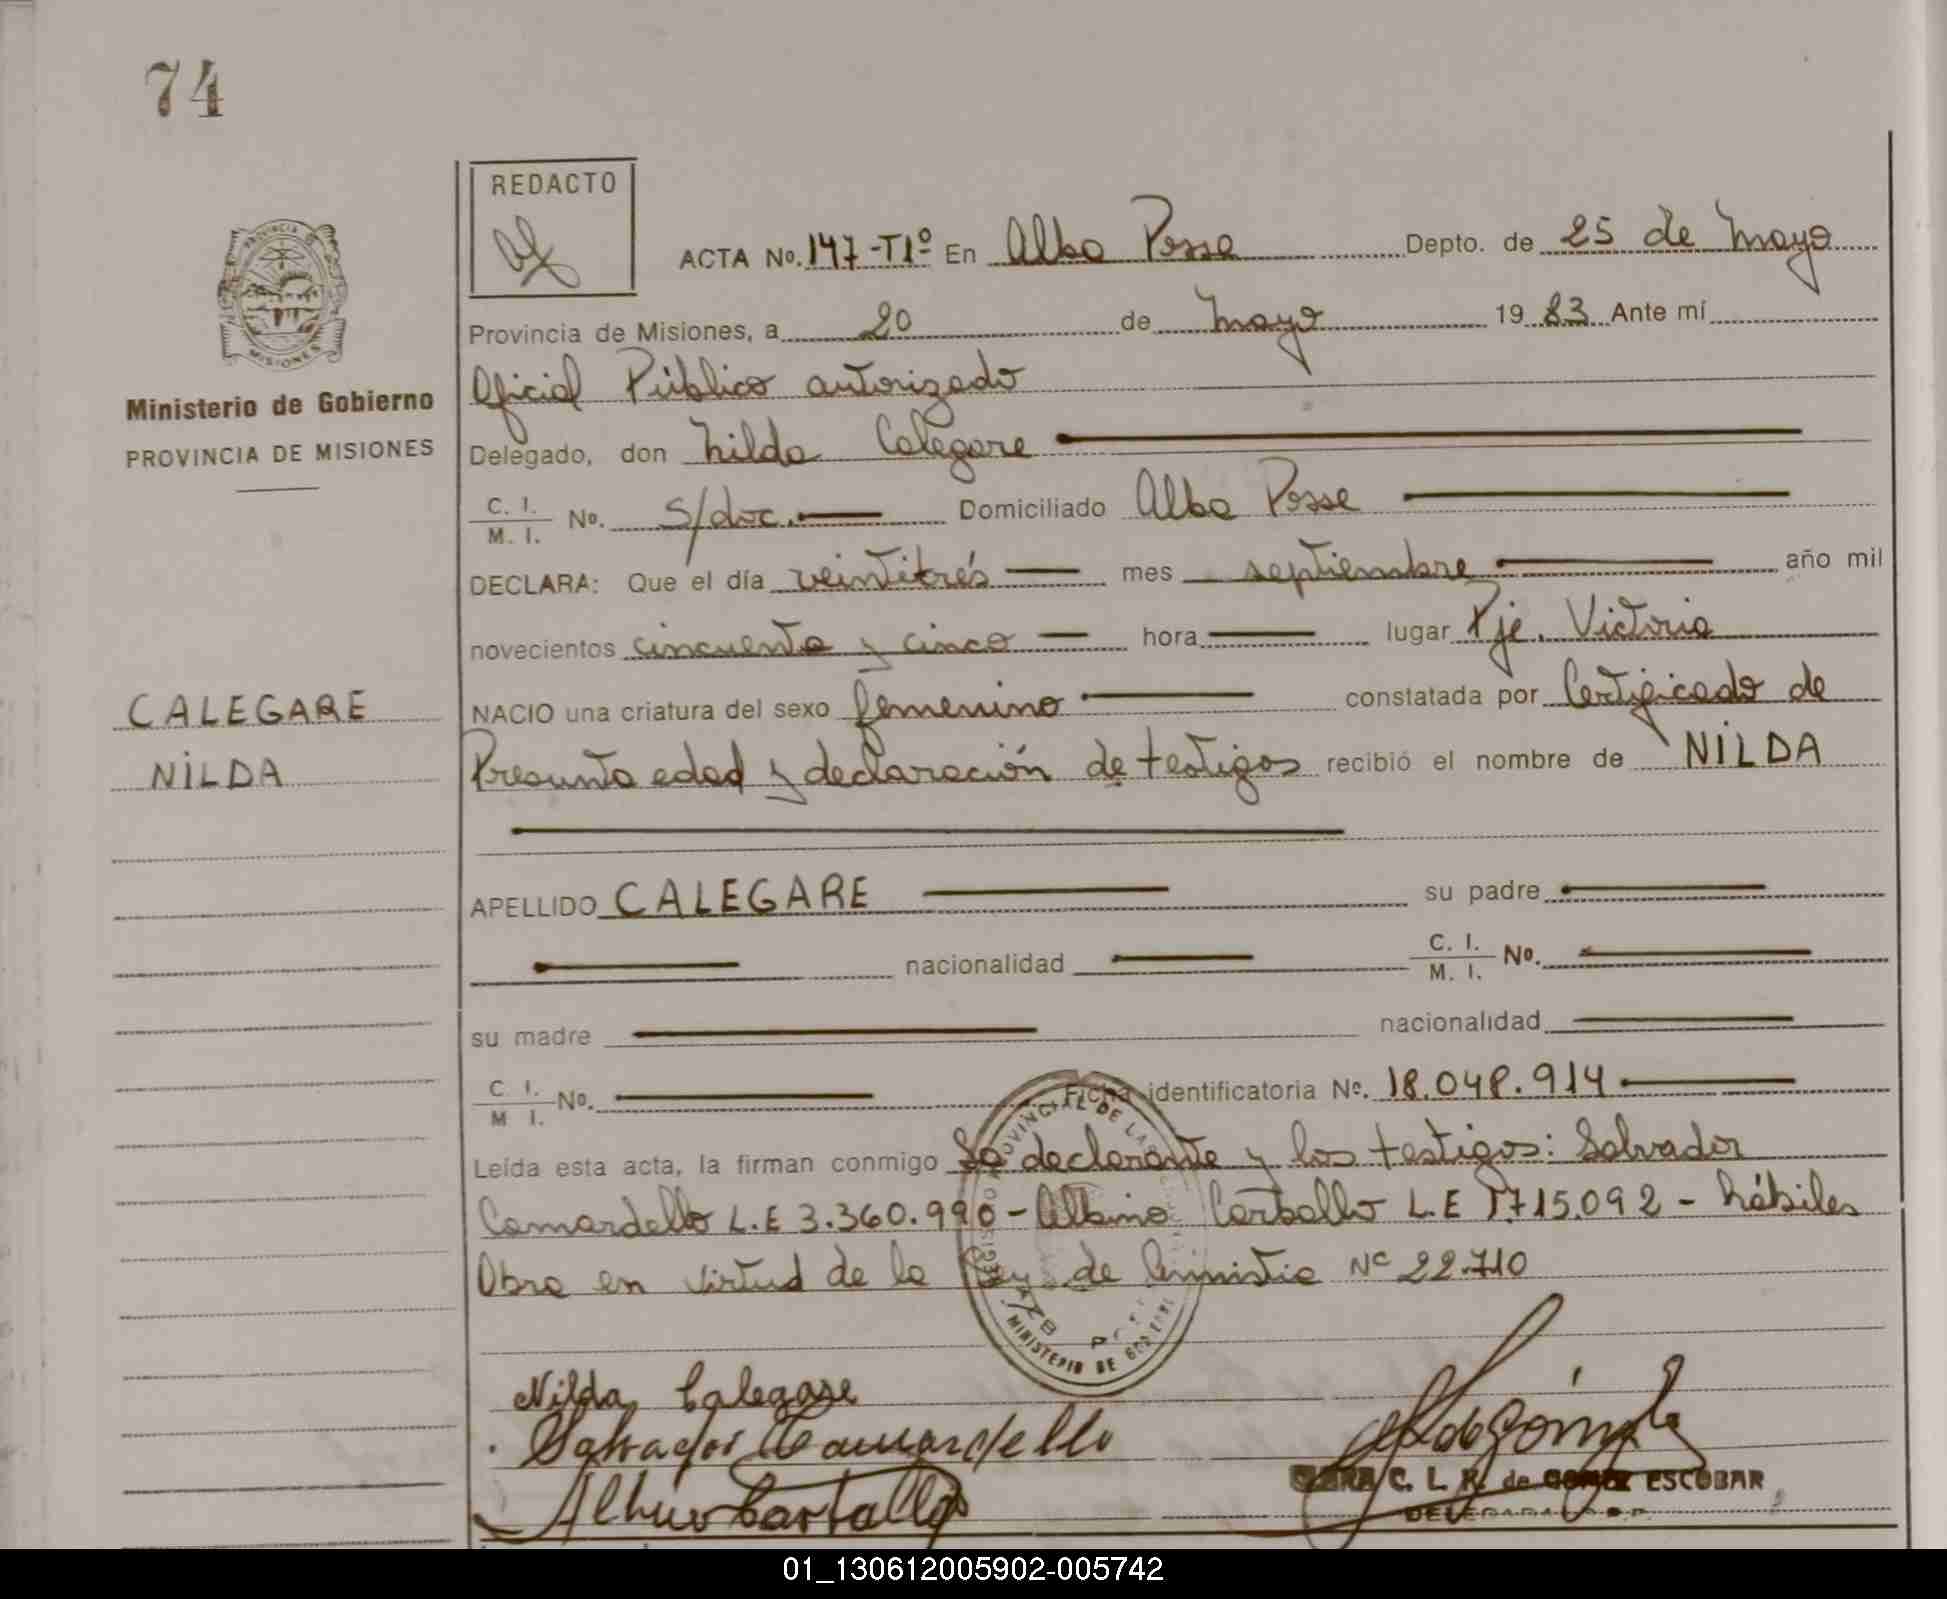 74
REDACTO
ACTA No. 147-T1º En Alba Posse Depto. de 25 de Mayo
Provincia de Misiones, a 20 de Mayo 1983 Ante mí
Oficial Público autorizado
Ministerio de Gobierno
PROVINCIA DE MISIONES
Delegado, don Nilda Calegare
C. I.
M. I. No. s/doc. Domiciliado Alba Posse
DECLARA: Que el día veintitrés mes septiembre año mil
novecientos cincuenta y cinco hora lugar Pje. Victoria
CALEGARE
NILDA
NACIO una criatura del sexo femenino constatada por Certificado de
Presunta edad y declaración de testigos recibió el nombre de NILDA
APELLIDO CALEGARE su padre
nacionalidad C. I.
M. I. No.
su madre nacionalidad
C. I.
M I. No. Ficha identificatoria No. 18.048.914
Leída esta acta, la firman conmigo La declarante y los testigos: Salvador
Camardello L.E 3.360.990 - Albino Carballo L.E 1.715.092 - hábiles
Obra en virtud de la Ley de Amnistia Nº 22.710
Nilda Calegare
Salvador Camardello
Albino Carballo
C. L. R. de GOMEZ ESCOBAR
DELEGADA
MINISTERIO DE GOBIERNO
01_130612005902-005742